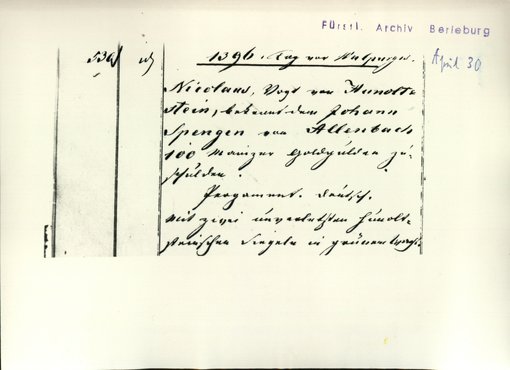 Fürstl. Archiv Berleburg
1396. Tag vor Walpurgis.
April 30
Nicolaus, Vogt von Hunolt-
stein, bekennt dem Johann
Spengen von Allenbach
100 Mainzer Goldgulden zu
schulden.
Pergament. Deutsch.
Mit zwei unverletzten Hunolt-
steinischen Siegeln in grünem Wachs.